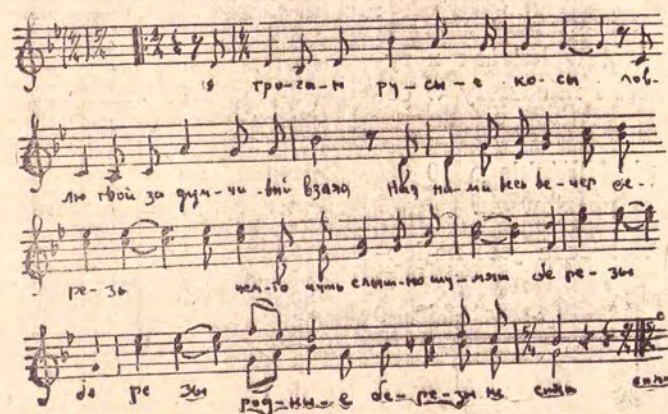 я тро-га-ю ру-сы-е ко-сы лов-
лю твой за дум-чи-вый взгляд Над на-ми весь ве-чер бе-
ре-зы чем-то чуть слыш-но шу-мят бе ре-зы
бе ре зы род-ны-е бе-ре-зы не спят